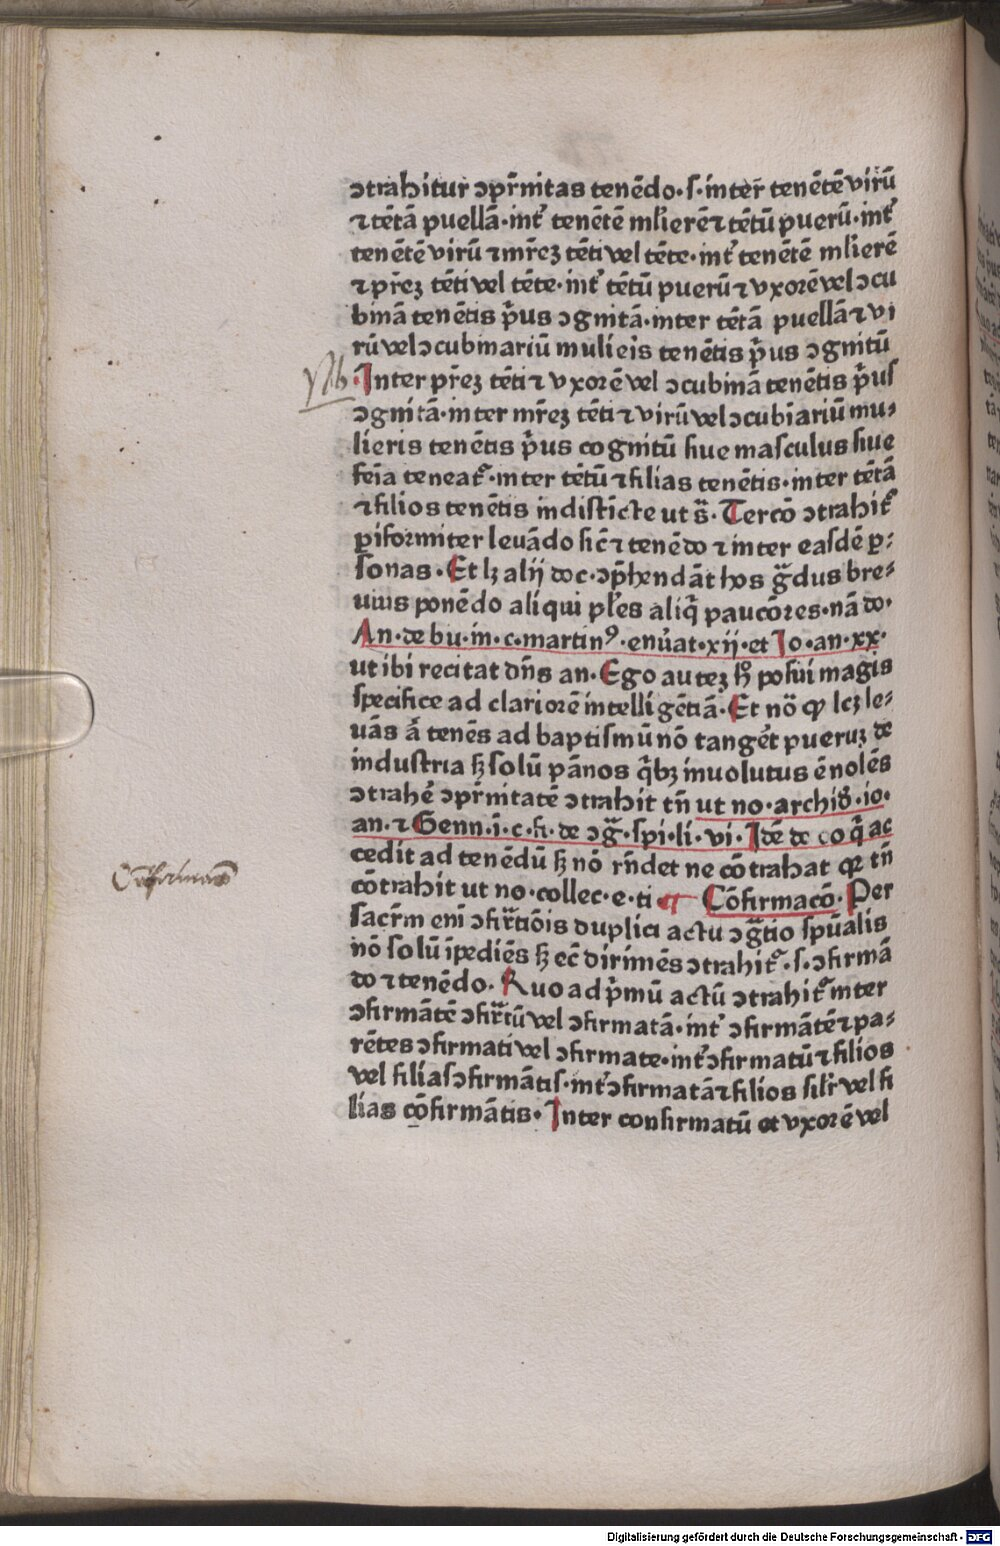 ɔtrahitur ɔpr̄nitas tenēdo·s·inter̄ tenētē virū
⁊ tētā puellā·int̉ tenētē mlierē⁊ tētū puerū·int̉
tenētē virū ⁊mr̄eꝫ tēti vel tēte·int̉ tenētē mlierē
⁊ pr̄eꝫ tēti vel tēte·int̉ tētū puerū⁊ vxorē vel ɔcu
binā tenētis p̉us ɔgnitā·inter tētā puellā⁊ vi
rū vel ɔcubinariū mulieỉs tenētis p̉us ɔgnitū
Nb
·Inter pr̄eꝫ tēti⁊ vxorē vel ɔcubinā tenētis p̉us
ɔgnitā·inter mr̄eꝫ tēti⁊ virū vel ɔcubiariū mu⸗
lieris tenētis p̉us cognitū siue masculus siue
fēia teneat̉·inter tētū ⁊filias tenētis·inter tētā
⁊filios tenētis indistīcte ut s̄·Tercō ɔtrahit̉
ꝑiformiter leuādo sic̄⁊ tenēdo ⁊ inter easdē ꝑ⸗
sonas·Et lꝫ alij doc·ɔp̄hendāt hos g̃dus bre⸗
uius ponēdo aliqui pl̄es aliq̉ paucōres·nā do·
An·de bu·in·c·martinꝰ·enu̇at·xij·et Io·an·xx·
ut ibi recitat dn̄s an·Ego auteꝫ h̄ posui magis
specifice ad clariorē intelligētiā·Et nō ꝙ lcꝫ le⸗
uās ā tenēs ad baptismū nō tanget̉ pueruꝫ de
industria sꝫ solū pānos q̉bꝫ inuolutus ē nolēs
ɔtrahe̅ ɔpr̄nitatē ɔtrahit tn̄ ut no·archiđ·io·
an·⁊ Genn·ī·c·fi·de ɔg̃·spi·li·vi·Idē de eo q̉ ac
cedit ad tenēdū sꝫ nō rn̄det ne cōtrahat qꝛ tn̄
cōtrahit ut no·collec·e·ti ¶ Cōfirmacō·Per
sacr̄m enī ɔfir̄tiōis duplici actu ɔg̃tio spūalis
nō solū īpediēs sꝫ ec̄ dirimēs ɔtrahit̉·s·ɔfirmā
do ⁊ tenēdo·Quo ad p̉mū actū ɔtrahit̉ inter
ɔfirmātē ɔfir̄tū vel ɔfirmatā·int̉ ɔfirmātē⁊ pa⸗
rētes ɔfirmati vel ɔfirmate·int̉ ɔfirmatū⁊ filios
vel filias ɔfirmātis·int̉ ɔfirmatā⁊ filios silr̄ vel fi
lias cōfirmātis·Inter confirmatū et vxorē vel
Digitalisierung gefördert durch die Deutsche Forschungsgemeinschaft - DFG